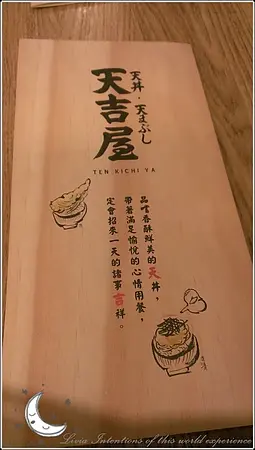 天丼・天まぶし
天吉屋
TEN KICHI YA
品嚐香酥鮮美的天丼，
帶著滿足愉悅的心情用餐，
定會招來一天的諸事吉祥。
Livia Intentions of this world experience